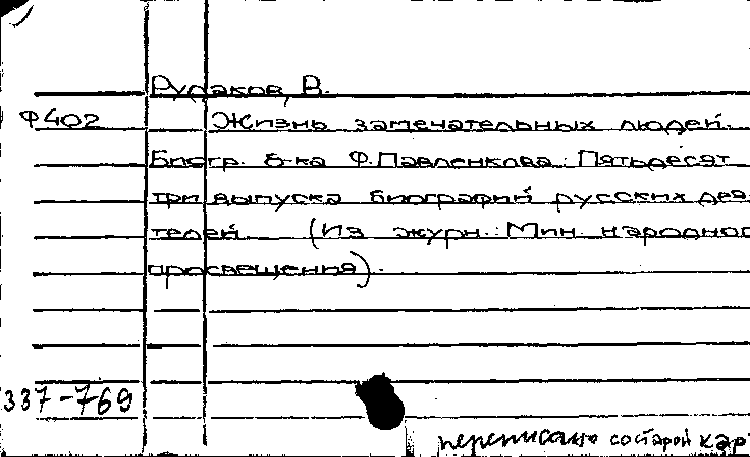 Рудаков, В.
Ф402 Жизнь замечательных людей.
Биогр. б-ка Ф. Павленкова. Пятьдесят
три выпуска биографий русских дея-
телей (Из журн. Мин. народног
просвещения).
337-769
переписано со старой карт